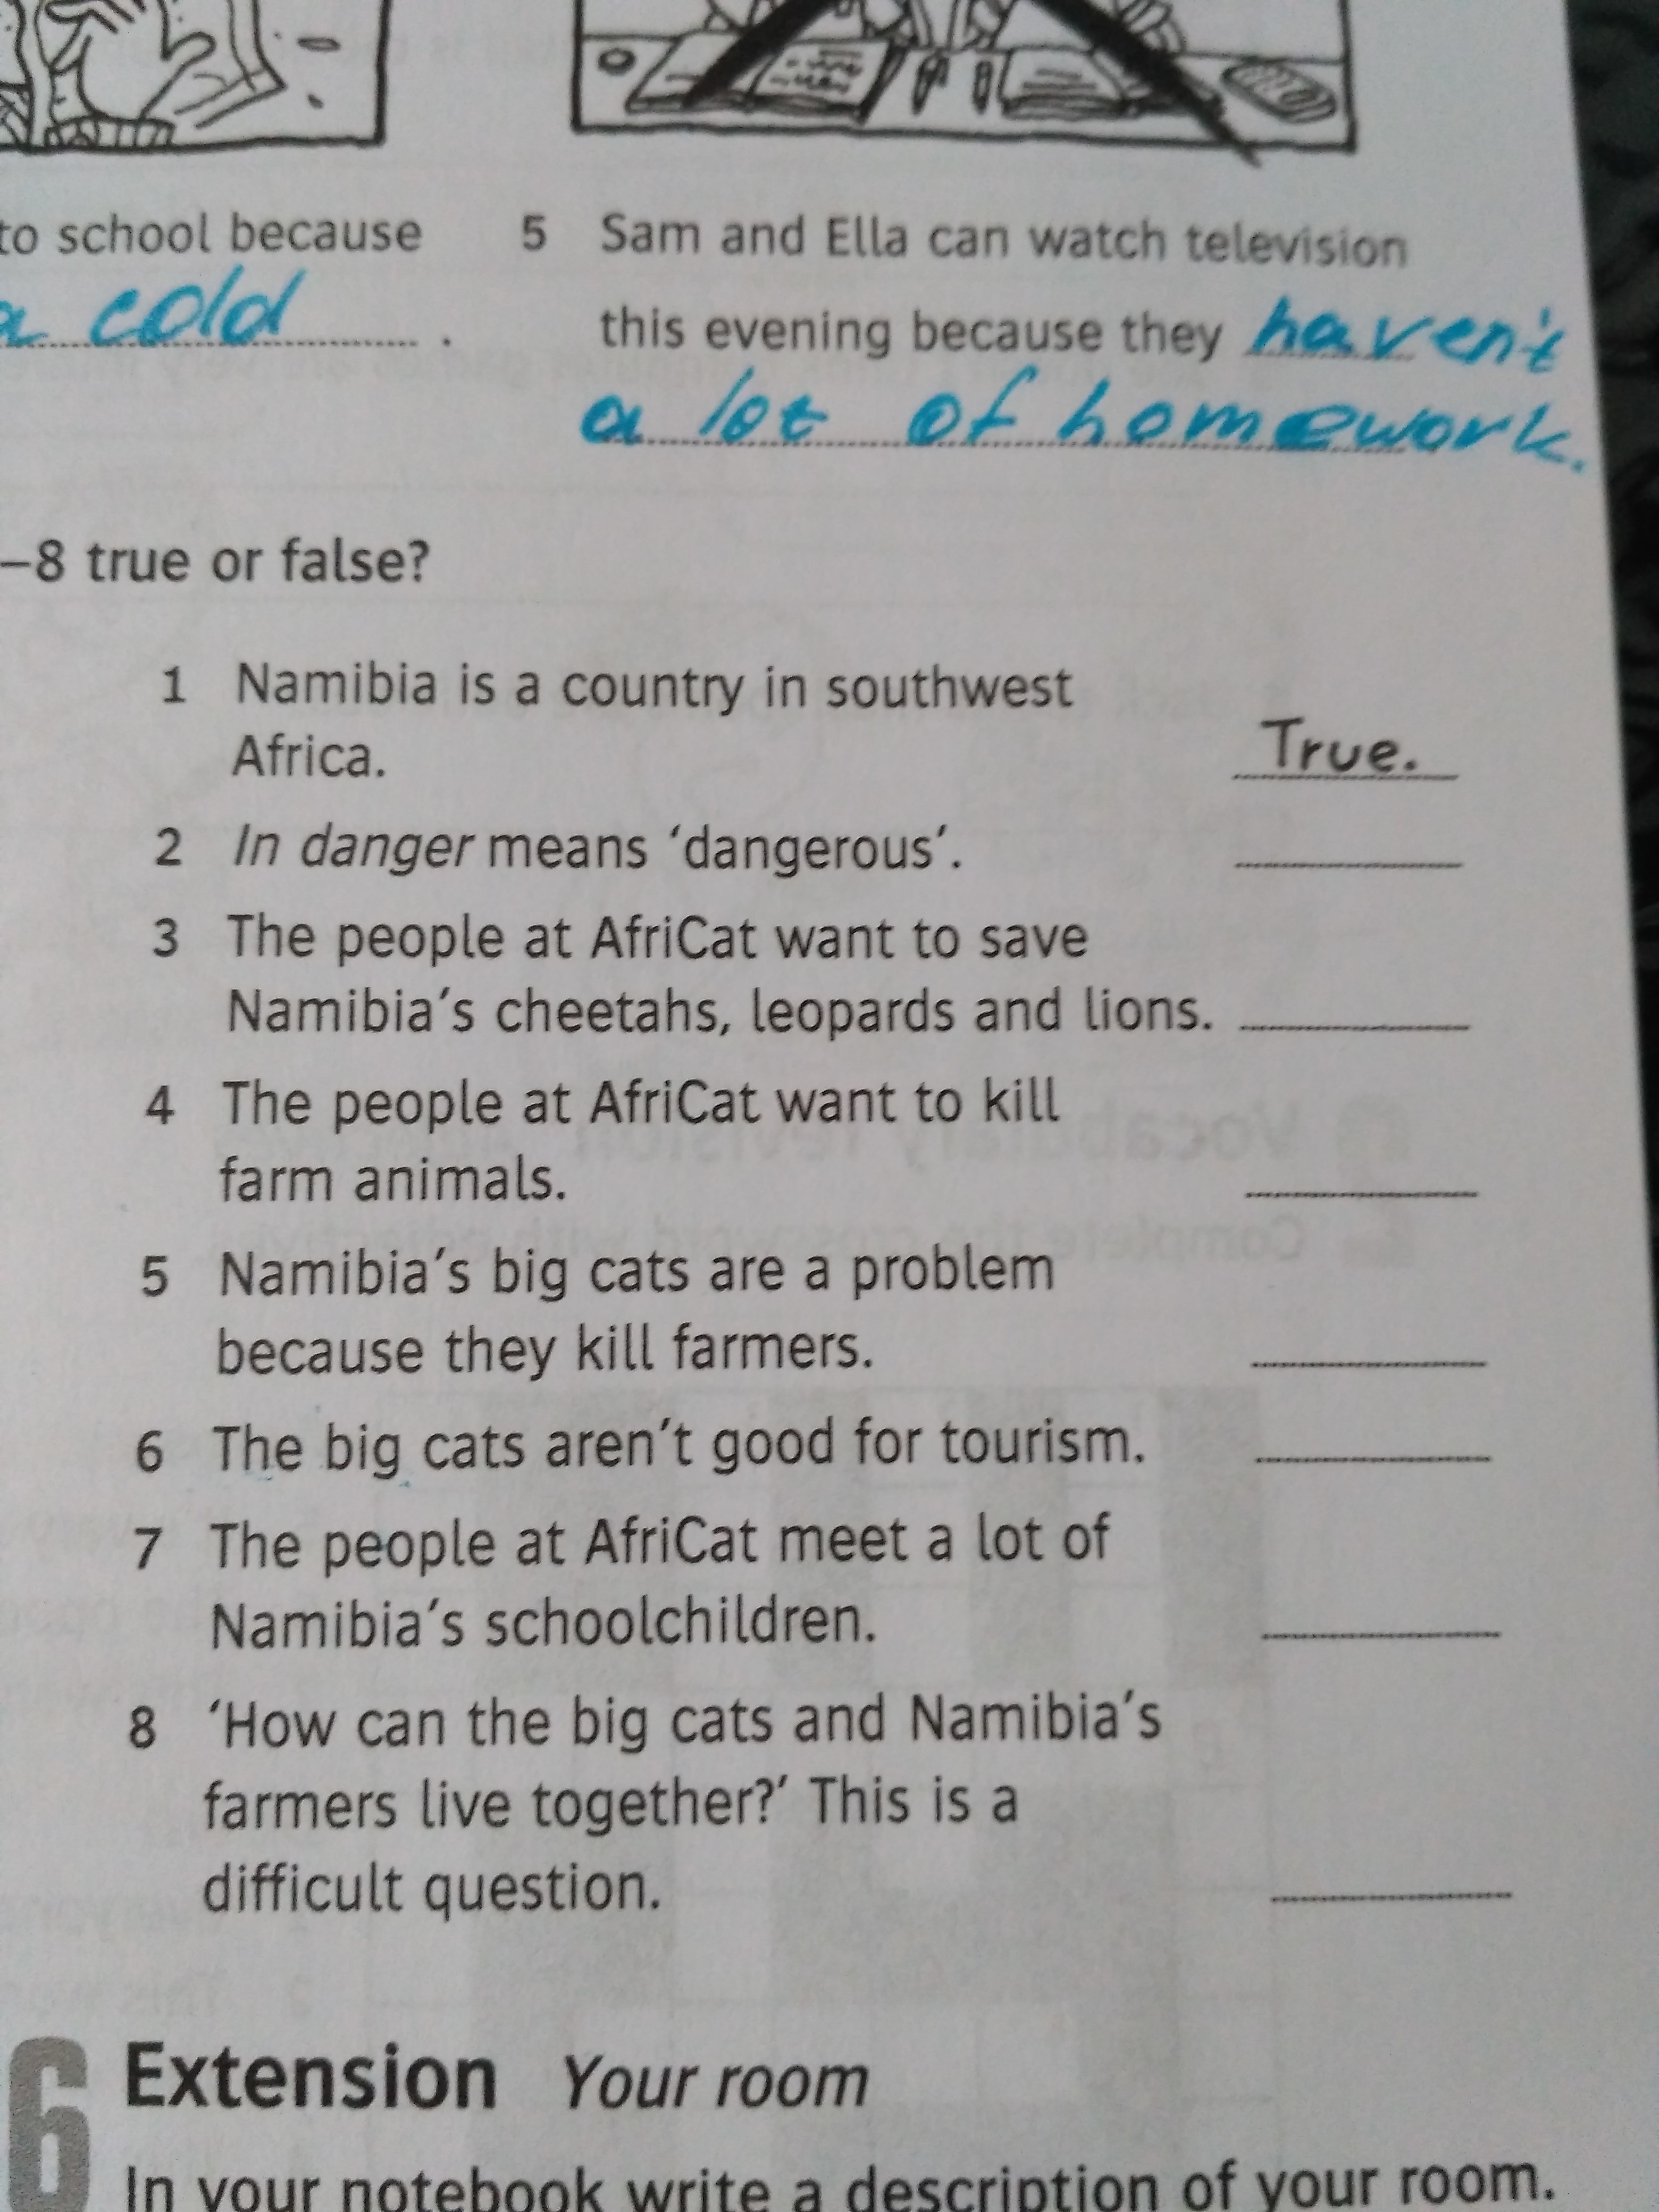 to school because
a cold .
5 Sam and Ella can watch television
this evening because they haven't
a lot of homework.
–8 true or false?
1 Namibia is a country in southwest
Africa. True.
2 In danger means ‘dangerous’.
3 The people at AfriCat want to save
Namibia’s cheetahs, leopards and lions.
4 The people at AfriCat want to kill
farm animals.
5 Namibia’s big cats are a problem
because they kill farmers.
6 The big cats aren’t good for tourism.
7 The people at AfriCat meet a lot of
Namibia’s schoolchildren.
8 ‘How can the big cats and Namibia’s
farmers live together?’ This is a
difficult question.
6 Extension Your room
In your notebook write a description of your room.